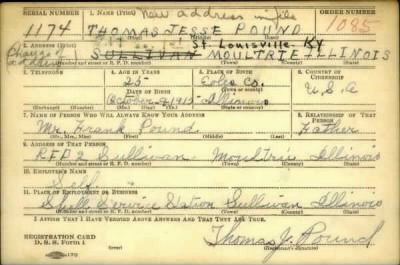 SERIAL NUMBER 1. NAME (Print) New address in file ORDER NUMBER
1174 THOMAS JESE POUND 1085
(First) (Middle) (Last)
2. ADDRESS (Print)
Change address St. Louisville, Ky
SULLIVAN MOULTRIE ILLINOIS
(Number and street or R. F. D. number) (Town) (County) (State)
3. TELEPHONE 4. AGE IN YEARS 5. PLACE OF BIRTH 6. COUNTRY OF CITIZENSHIP
25 Coles Co.
DATE OF BIRTH (Town or county)
October 9, 1915 Illinois U.S.A
(Exchange) (Number) (Mo.) (Day) (Yr.) (State or country)
7. NAME OF PERSON WHO WILL ALWAYS KNOW YOUR ADDRESS 8. RELATIONSHIP OF THAT PERSON
Mr. Frank Pound Father
(Mr., Mrs., Miss) (First) (Middle) (Last)
9. ADDRESS OF THAT PERSON
RFD 2 Sullivan - Moultrie Illinois
(Number and street or R. F. D. number) (Town) (County) (State)
10. EMPLOYER'S NAME
Self
11. PLACE OF EMPLOYMENT OR BUSINESS
Shell Service Station Sullivan Illinois
(Number and street or R. F. D. number) (Town) (County) (State)
I AFFIRM THAT I HAVE VERIFIED ABOVE ANSWERS AND THAT THEY ARE TRUE.
REGISTRATION CARD
D. S. S. Form 1
Thomas J. Pound
(Registrant's signature)